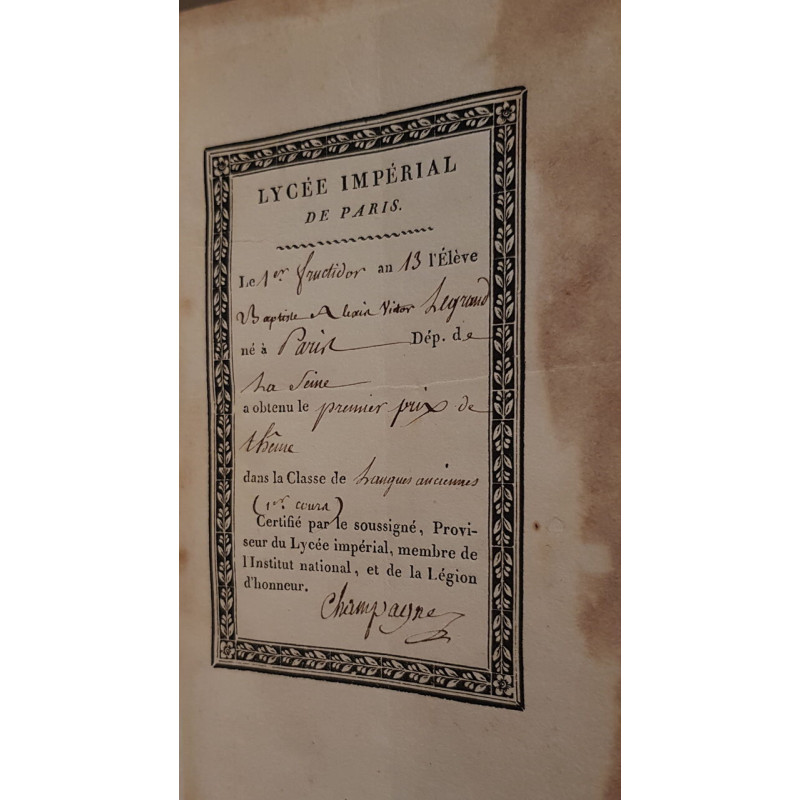 LYCÉE IMPÉRIAL
DE PARIS.
Le 1er fructidor an 13 l'Élève
Baptiste Alexis Victor Legrand
né à Paris Dép. de
La Seine
a obtenu le premier prix de
thême
dans la Classe de Langues anciennes
(1er. cours)
Certifié par le soussigné, Provi-
seur du Lycée impérial, membre de
l'Institut national, et de la Légion
d'honneur.
Champagne